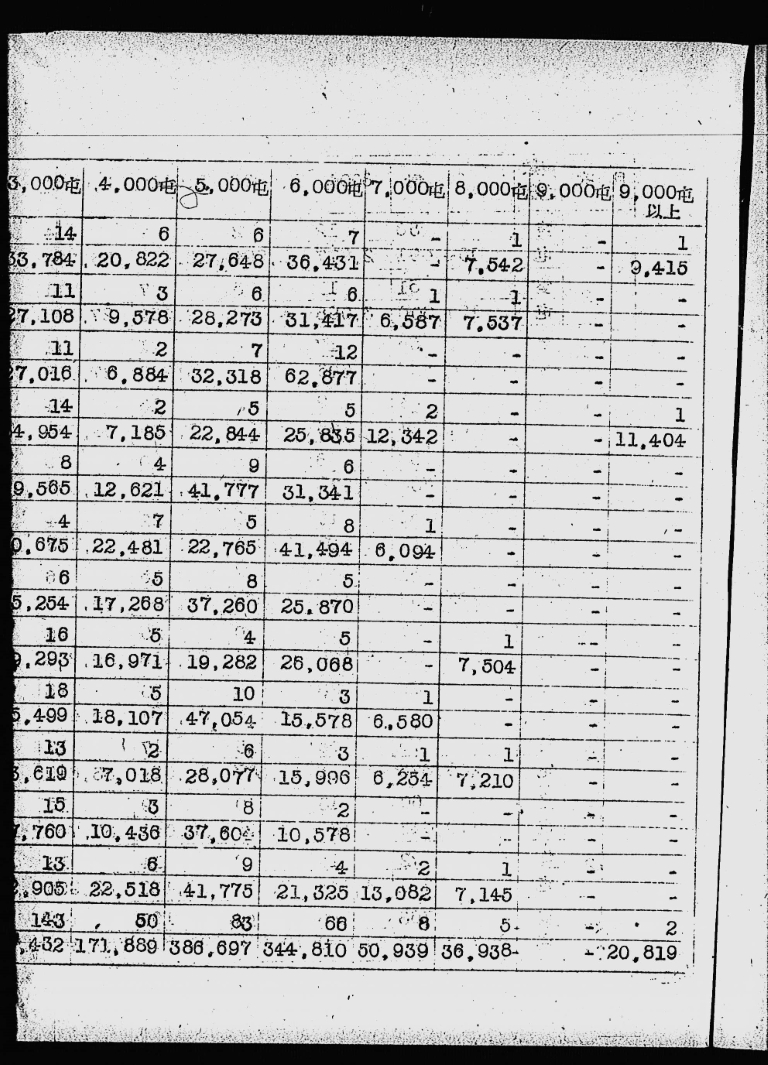 3,000屯 4,000屯 5,000屯 6,000屯 7,000屯 8,000屯 9,000屯 9,000屯
以上
14 6 6 7 - 1 - 1
33,784 20,822 27,648 36,431 - 7,542 - 9,415
11 3 6 6 1 1 - -
27,108 9,578 28,273 31,417 6,587 7,537 - -
11 2 7 12 - - - -
27,016 6,884 32,318 62,877 - - - -
14 2 5 5 2 - - 1
4,954 7,185 22,844 25,835 12,342 - - 11,404
8 4 9 6 - - - -
9,565 12,621 41,777 31,341 - - - -
4 7 5 8 1 - - -
0,675 22,481 22,765 41,494 6,094 - - -
6 5 8 5 - - - -
5,254 17,268 37,260 25,870 - - - -
16 5 4 5 - 1 - -
9,293 16,971 19,282 26,068 - 7,504 - -
18 5 10 3 1 - - -
5,499 18,107 47,054 15,578 6,580 - - -
13 2 6 3 1 1 - -
3,619 7,018 28,077 15,996 6,254 7,210 - -
15 3 8 2 - - - -
7,760 10,436 10,578 - - - -
13 6 9 4 2 1 - -
2,905 22,518 41,775 21,325 13,082 7,145 - -
143 50 83 66 8 5 - 2
,432 171,889 386,697 344,810 50,939 36,938 - 20,819